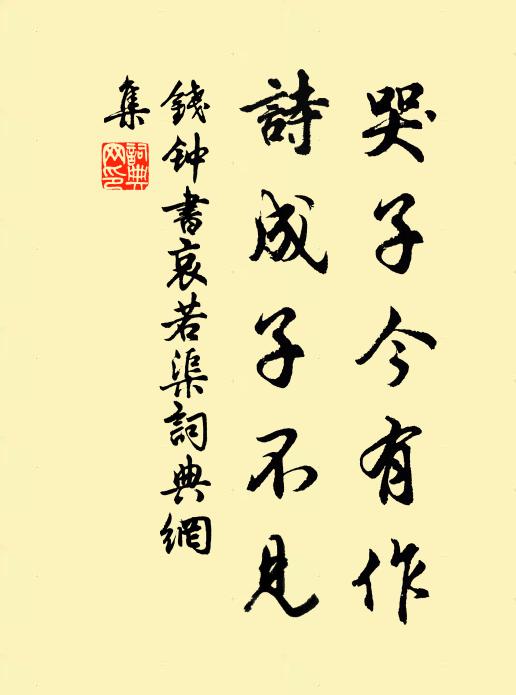 哭子今有作
詩成子不見
錢鍾書哀若渠詞典網
集
詞典網印